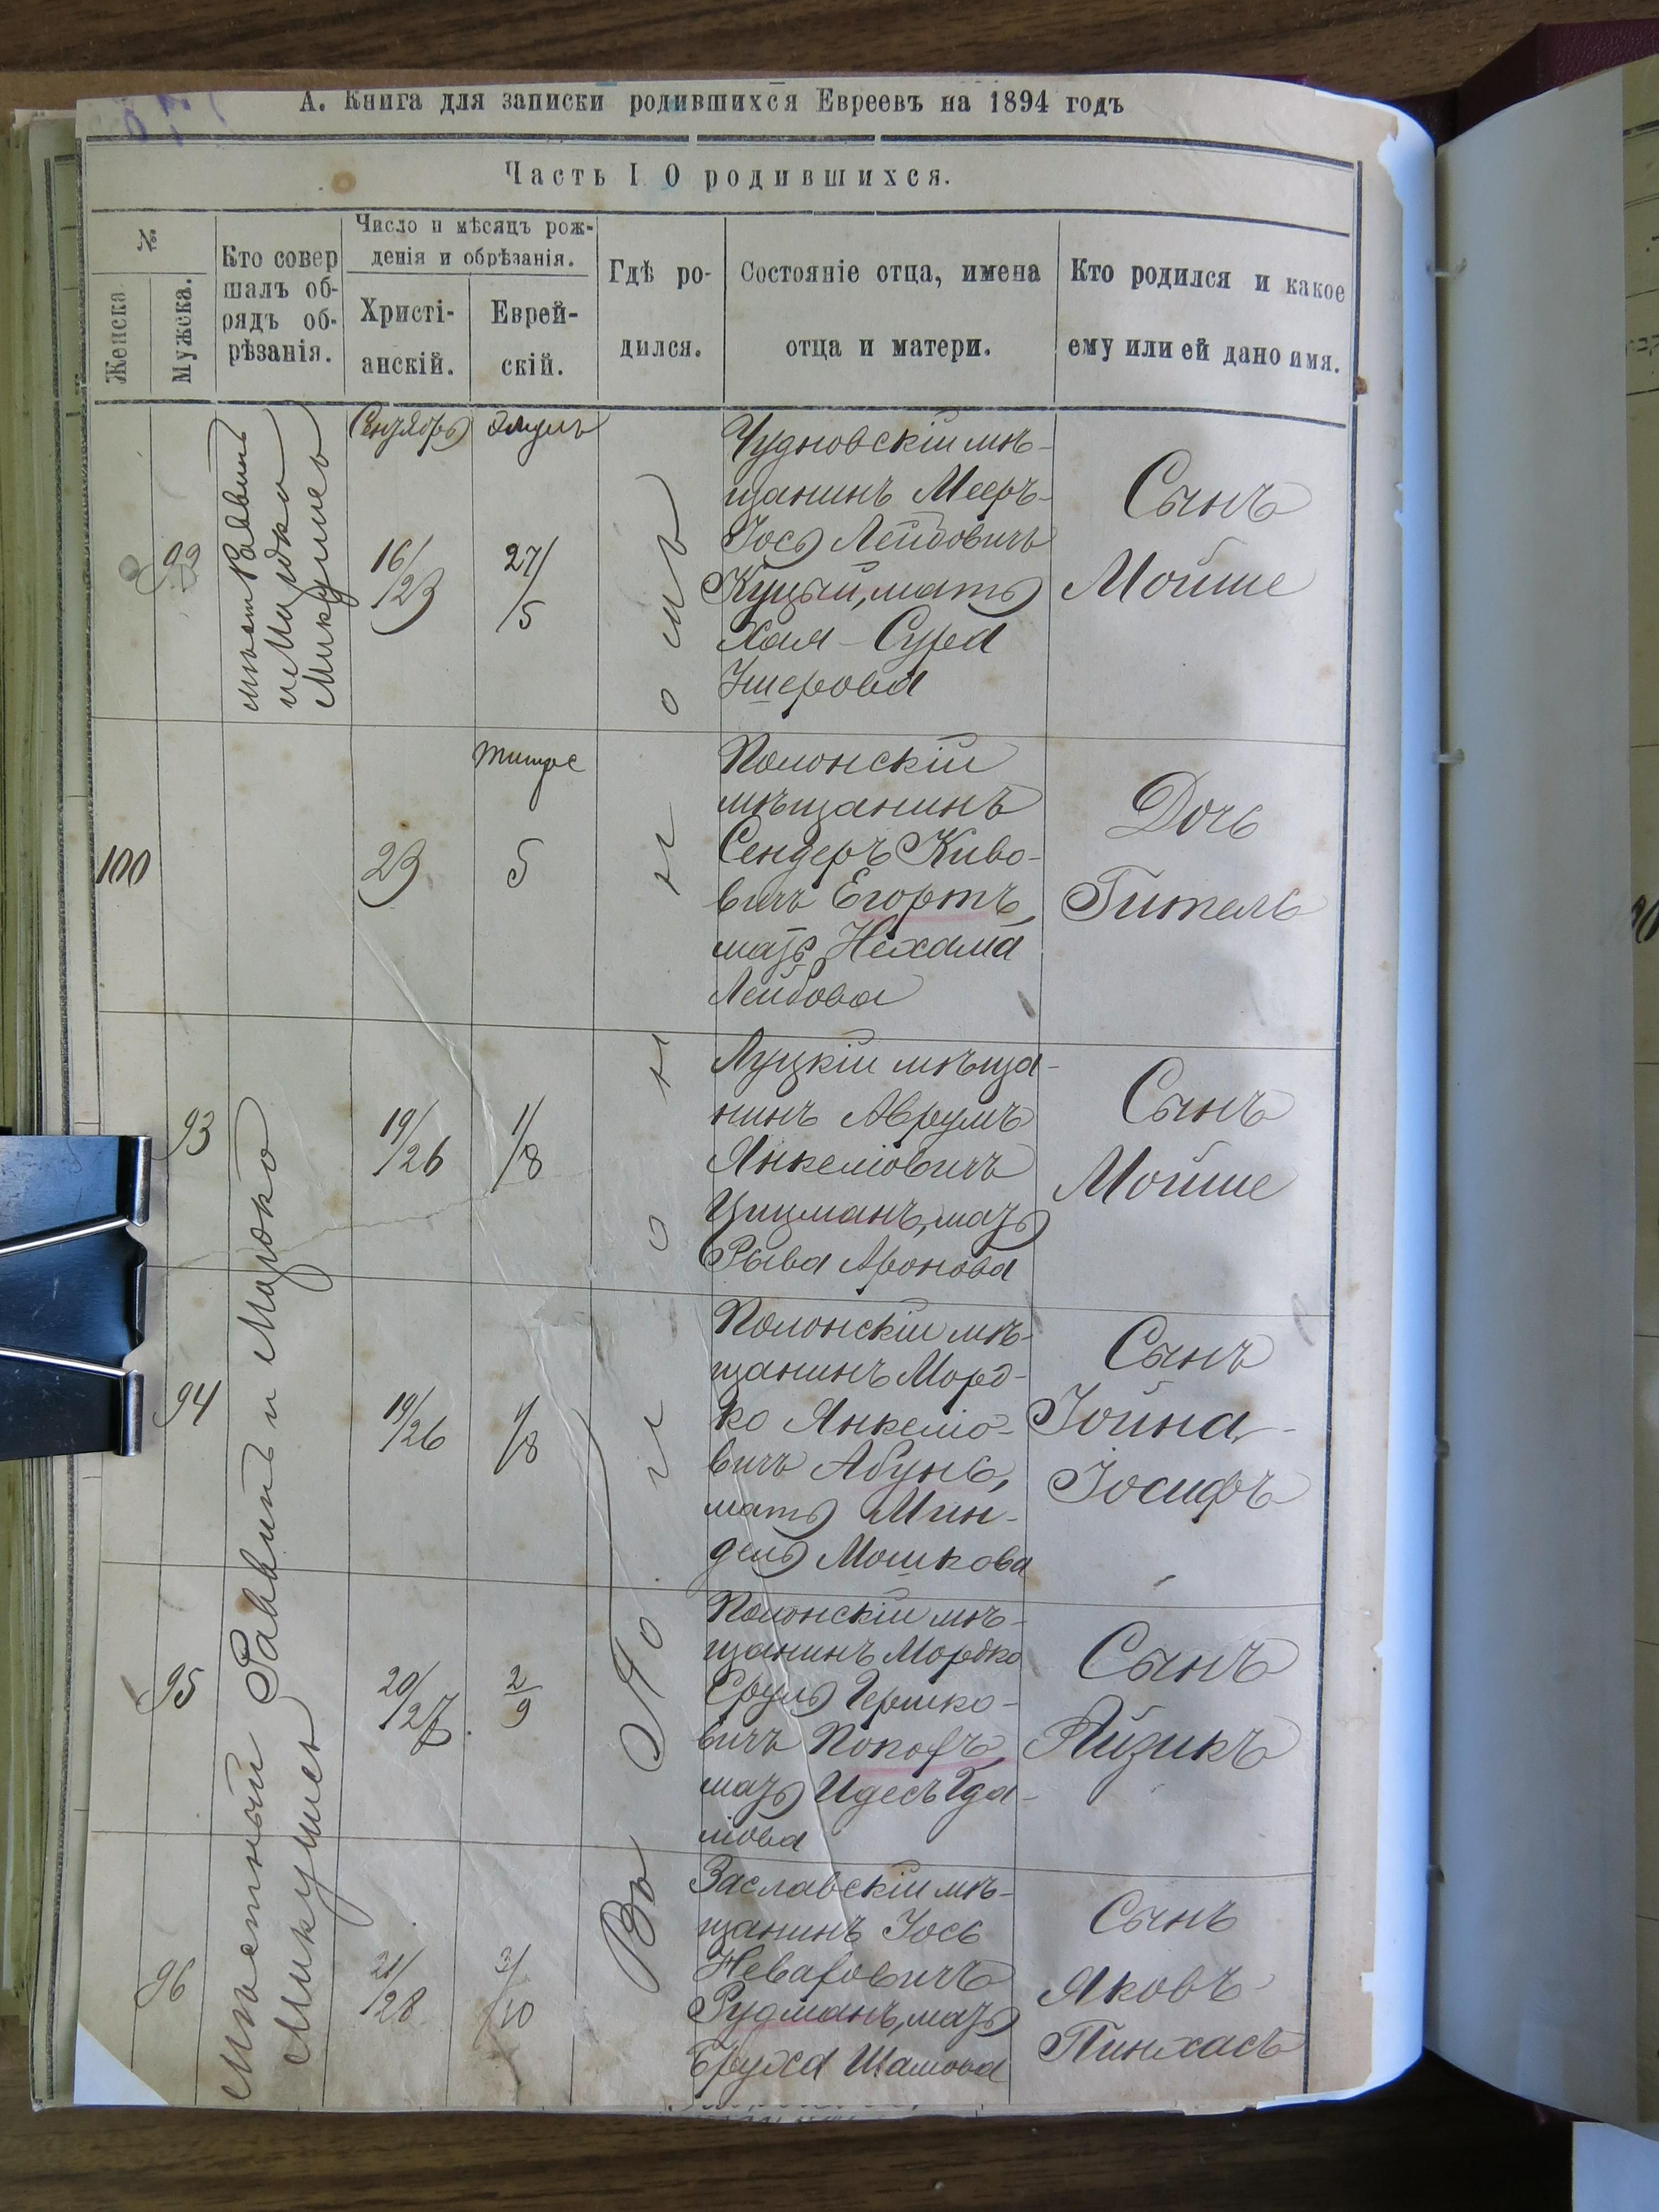 А. Книга для записки родившихся Евреевъ на 1894 годъ
Часть I О родившихся.
№
Женска.
Мужска.
Кто совер
шалъ об-
рядъ об-
рѣзанія.
Число и мѣсяцъ рож-
денія и обрѣзанія.
Христі-
анскій.
Еврей-
скій.
Гдѣ ро-
дился.
Состояніе отца, имена
отца и матери.
Кто родился и какое
ему или ей дано имя.
92
мѣст Раввинъ
и Мирко
Микушнеъ
Сентябрь
16/23
Элулъ
27/5
Чудновскій мѣ-
щанинъ Мееръ-
Іось Лейбовичъ
Куцый, мать
Хая-Сура
Ушерова
Сынъ
Мойше
100
23
тишре
5
Полонскій
мѣщанинъ
Сендеръ Киво-
вичъ Егортъ,
мать Нехама
Лейбова
Дочь
Гитель
93
19/26
1/8
Луцкій мѣща-
нинъ Аврумъ
Янкеліовичъ
Цицманъ, мать
Рыва Аронова
Сынъ
Мойше
94
19/26
1/8
Полонскій мѣ-
щанинъ Морд-
ко Янкеліо-
вичъ Абунь,
мать Мин-
дель Мошкова
Сынъ
Іойна-
Іосифъ
95
20/27
2/9
Полонскій мѣ-
щанинъ Мордко
Сруль Гершко-
вичъ
мать Идесъ Гда-
ліова
Сынъ
Айзикъ
96
Мѣстный Раввинъ и
21/28
3/10
Во
Заславскій мѣ-
щанинъ Іось
Неваховичъ
Рудманъ, мать
Бруха Шамова
Сынъ
Яковъ-
Пинхасъ